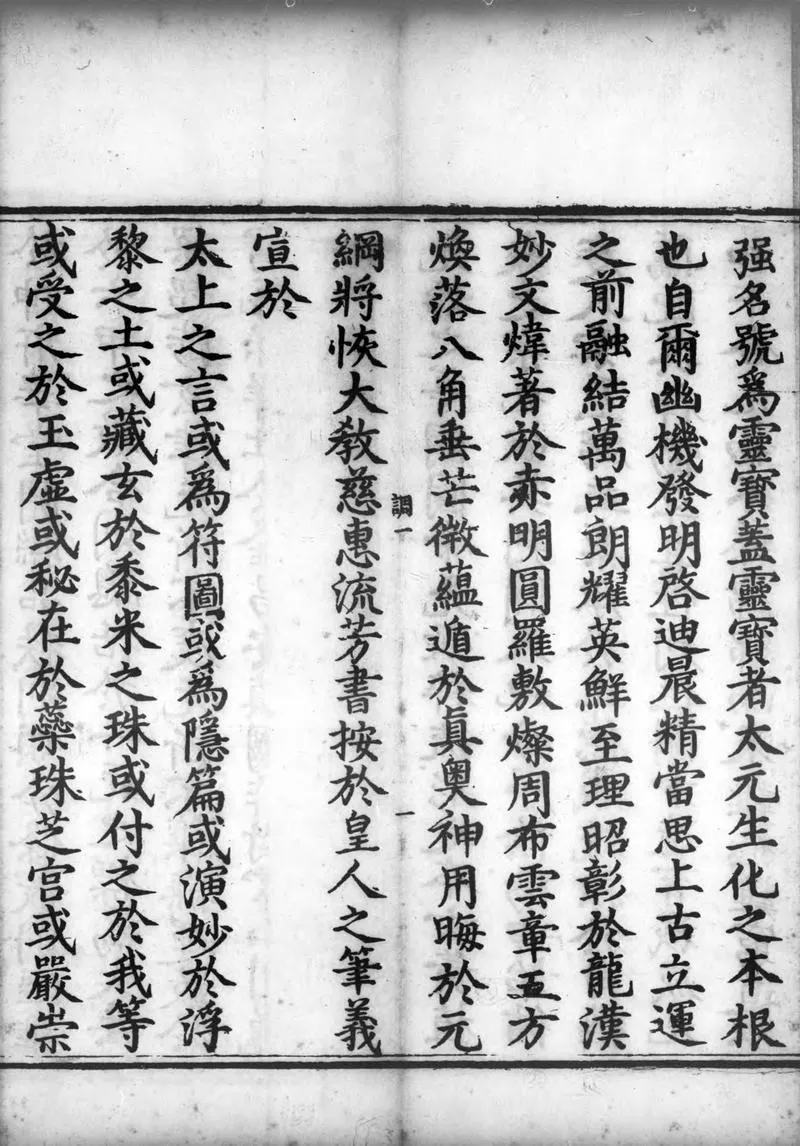 强名號爲靈寶蓋靈寶者太元生化之本根
也自爾幽機發明啓迪晨精當思上古立運
之前融結萬品朗耀英鮮至理昭彰於龍漢
妙文煒著於赤明圓羅敷燦周布雲章五方
煥落八角垂芒微蘊遁於真奧神用晦於元
調一
一
綱將恢大教慈惠流芳書按於皇人之筆義
宣於
太上之言或爲符圖或爲隱篇或演妙於浮
黎之土或藏玄於黍米之珠或付之於我等
或受之於玉虛或秘在於蘂珠芝宮或嚴崇